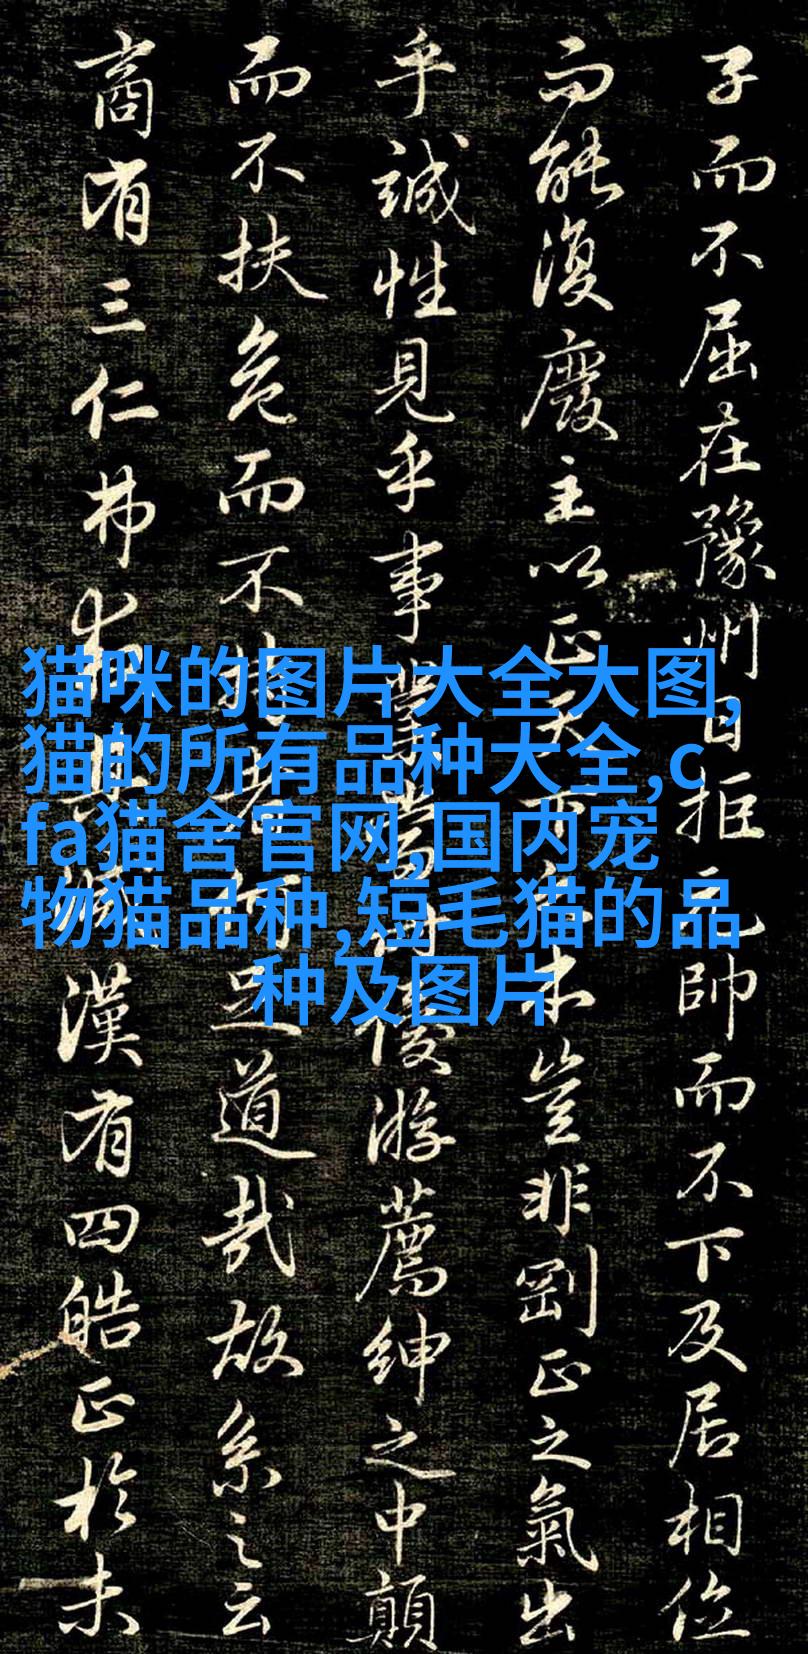 子而不屈在豫州日拒元帥而不下及居相位
而能復廢主以正天下之本豈非剛正之氣出
乎誠性見乎事業當時優游薦紳之中顛
而不扶危而不持者何足道哉故系之云
商有三仁弗救其滅漢有四皓正於未
猫咪的图片大全大图,
猫的所有品种大全,c
fa猫舍官网,国内宠
物猫品种,短毛猫的品
种及图片